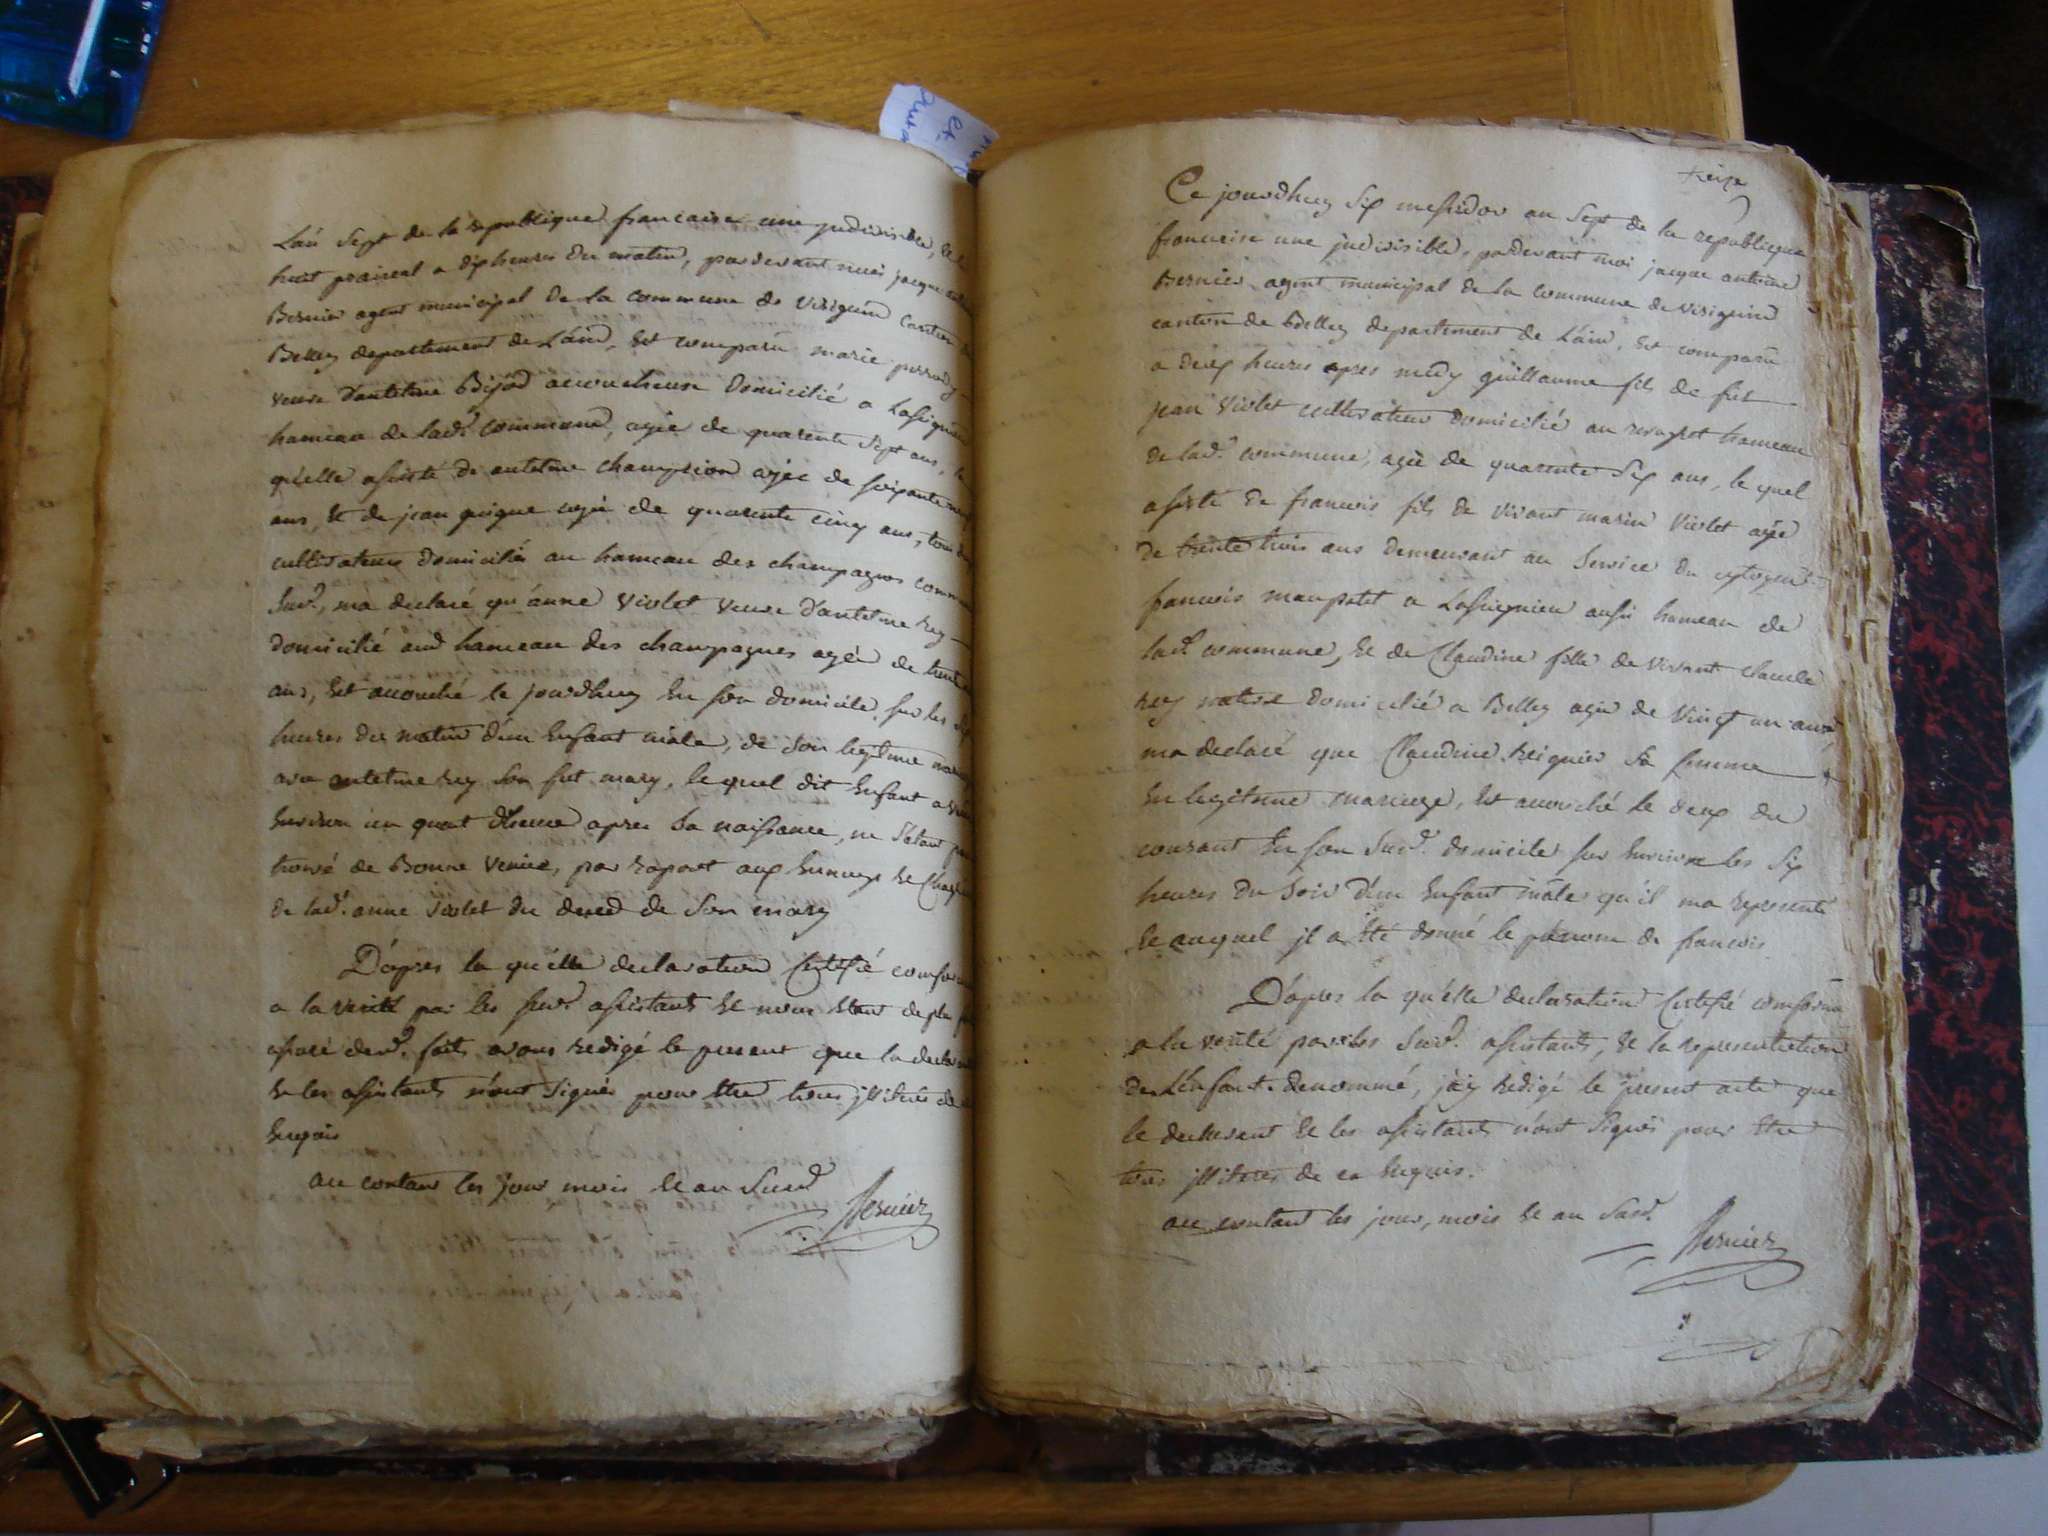 Lan Sept de la republique francaise une jndivisible, le
huit prairial a dix heures du matin, pardevant nous jacque
Bernier agent municipal de la commune de virignin canton de
Belley departement de Lain, Est comparu marie perrody
veuve d'antelme Bijod accoucheuse domicilié a
hameau de lad.e commune, agée de quarente Sept ans, la
qu'elle asisté de antelme champion agée de soixante
ans, Et de jean guigue agée de quarente cinq ans, tous
cultivateurs domiciliés au hameau des champagnes commune
Susd.e, ma declaré qu'anne violet veuve d'antelme rey
domicilié aud hameau des champagnes agée de trente
ans, Est accouché le jourdhuy En son domicile, sur les Six
heures du matin d'un Enfant male, de son legitime mariage
avec antelme rey Son fut mary, le quel dit Enfant a
Environ un quart d'heure apres Sa naissance, ne S'etant pas
trouvé de Bonne venüe, par raport aux Ennuys Et Chagrins
de lad.e anne violet du deced de Son mary
D'apres la qu'elle declaration Certifié conforme
a la verité par les Susd. asistants Et nous etant de plus
assuré desd. faits avons redigé le present que la declarante
Et les asistants n'ont Signés pour Etre tous jllitérés de ce
Enquis
au contant les jour mois Et an Susd.
Bernier
et
treize
Ce jourdhuy Six messidor an Sept de la republique
francaise une jndivisible, pardevant moi jacque antoine
Bernier agent municipal de la commune de virignin
canton de Belley departement de Lain, Est comparu
a deux heures apres midy guillaume fils de fut
jean violet cultivateur domicilié au hameau
de lad.e commune, agée de quarente Six ans, le quel
asisté de francois fils de vivant marin violet agée
de trente trois ans demeurant au Service du cytoyen
francois maupetit a Lassignieu aussi hameau de
lad.e commune, Et de Claudine fille de vivant claude
rey native domicilié a Belley agée de vingt un ans
ma declaré que Claudine Reignier Sa femme
En legitime mariage, Est accouché le deux du
courant En son Susd. domicile sur Environ les Six
heures du Soir d'un Enfant mâle qu'il ma representé
Et auquel jl a Eté donné le prénom de francois
D'apres la qu'elle declaration Certifié conforme
a la verité par les Susd. asistants, Et la representation
de L'Enfant denommé, j'ay redigé le present acte que
le declarant Et les asistants n'ont Signés pour Etre
tous jllitérés de ce Enquis.
au contant les jour, mois Et an Susd.
Bernier